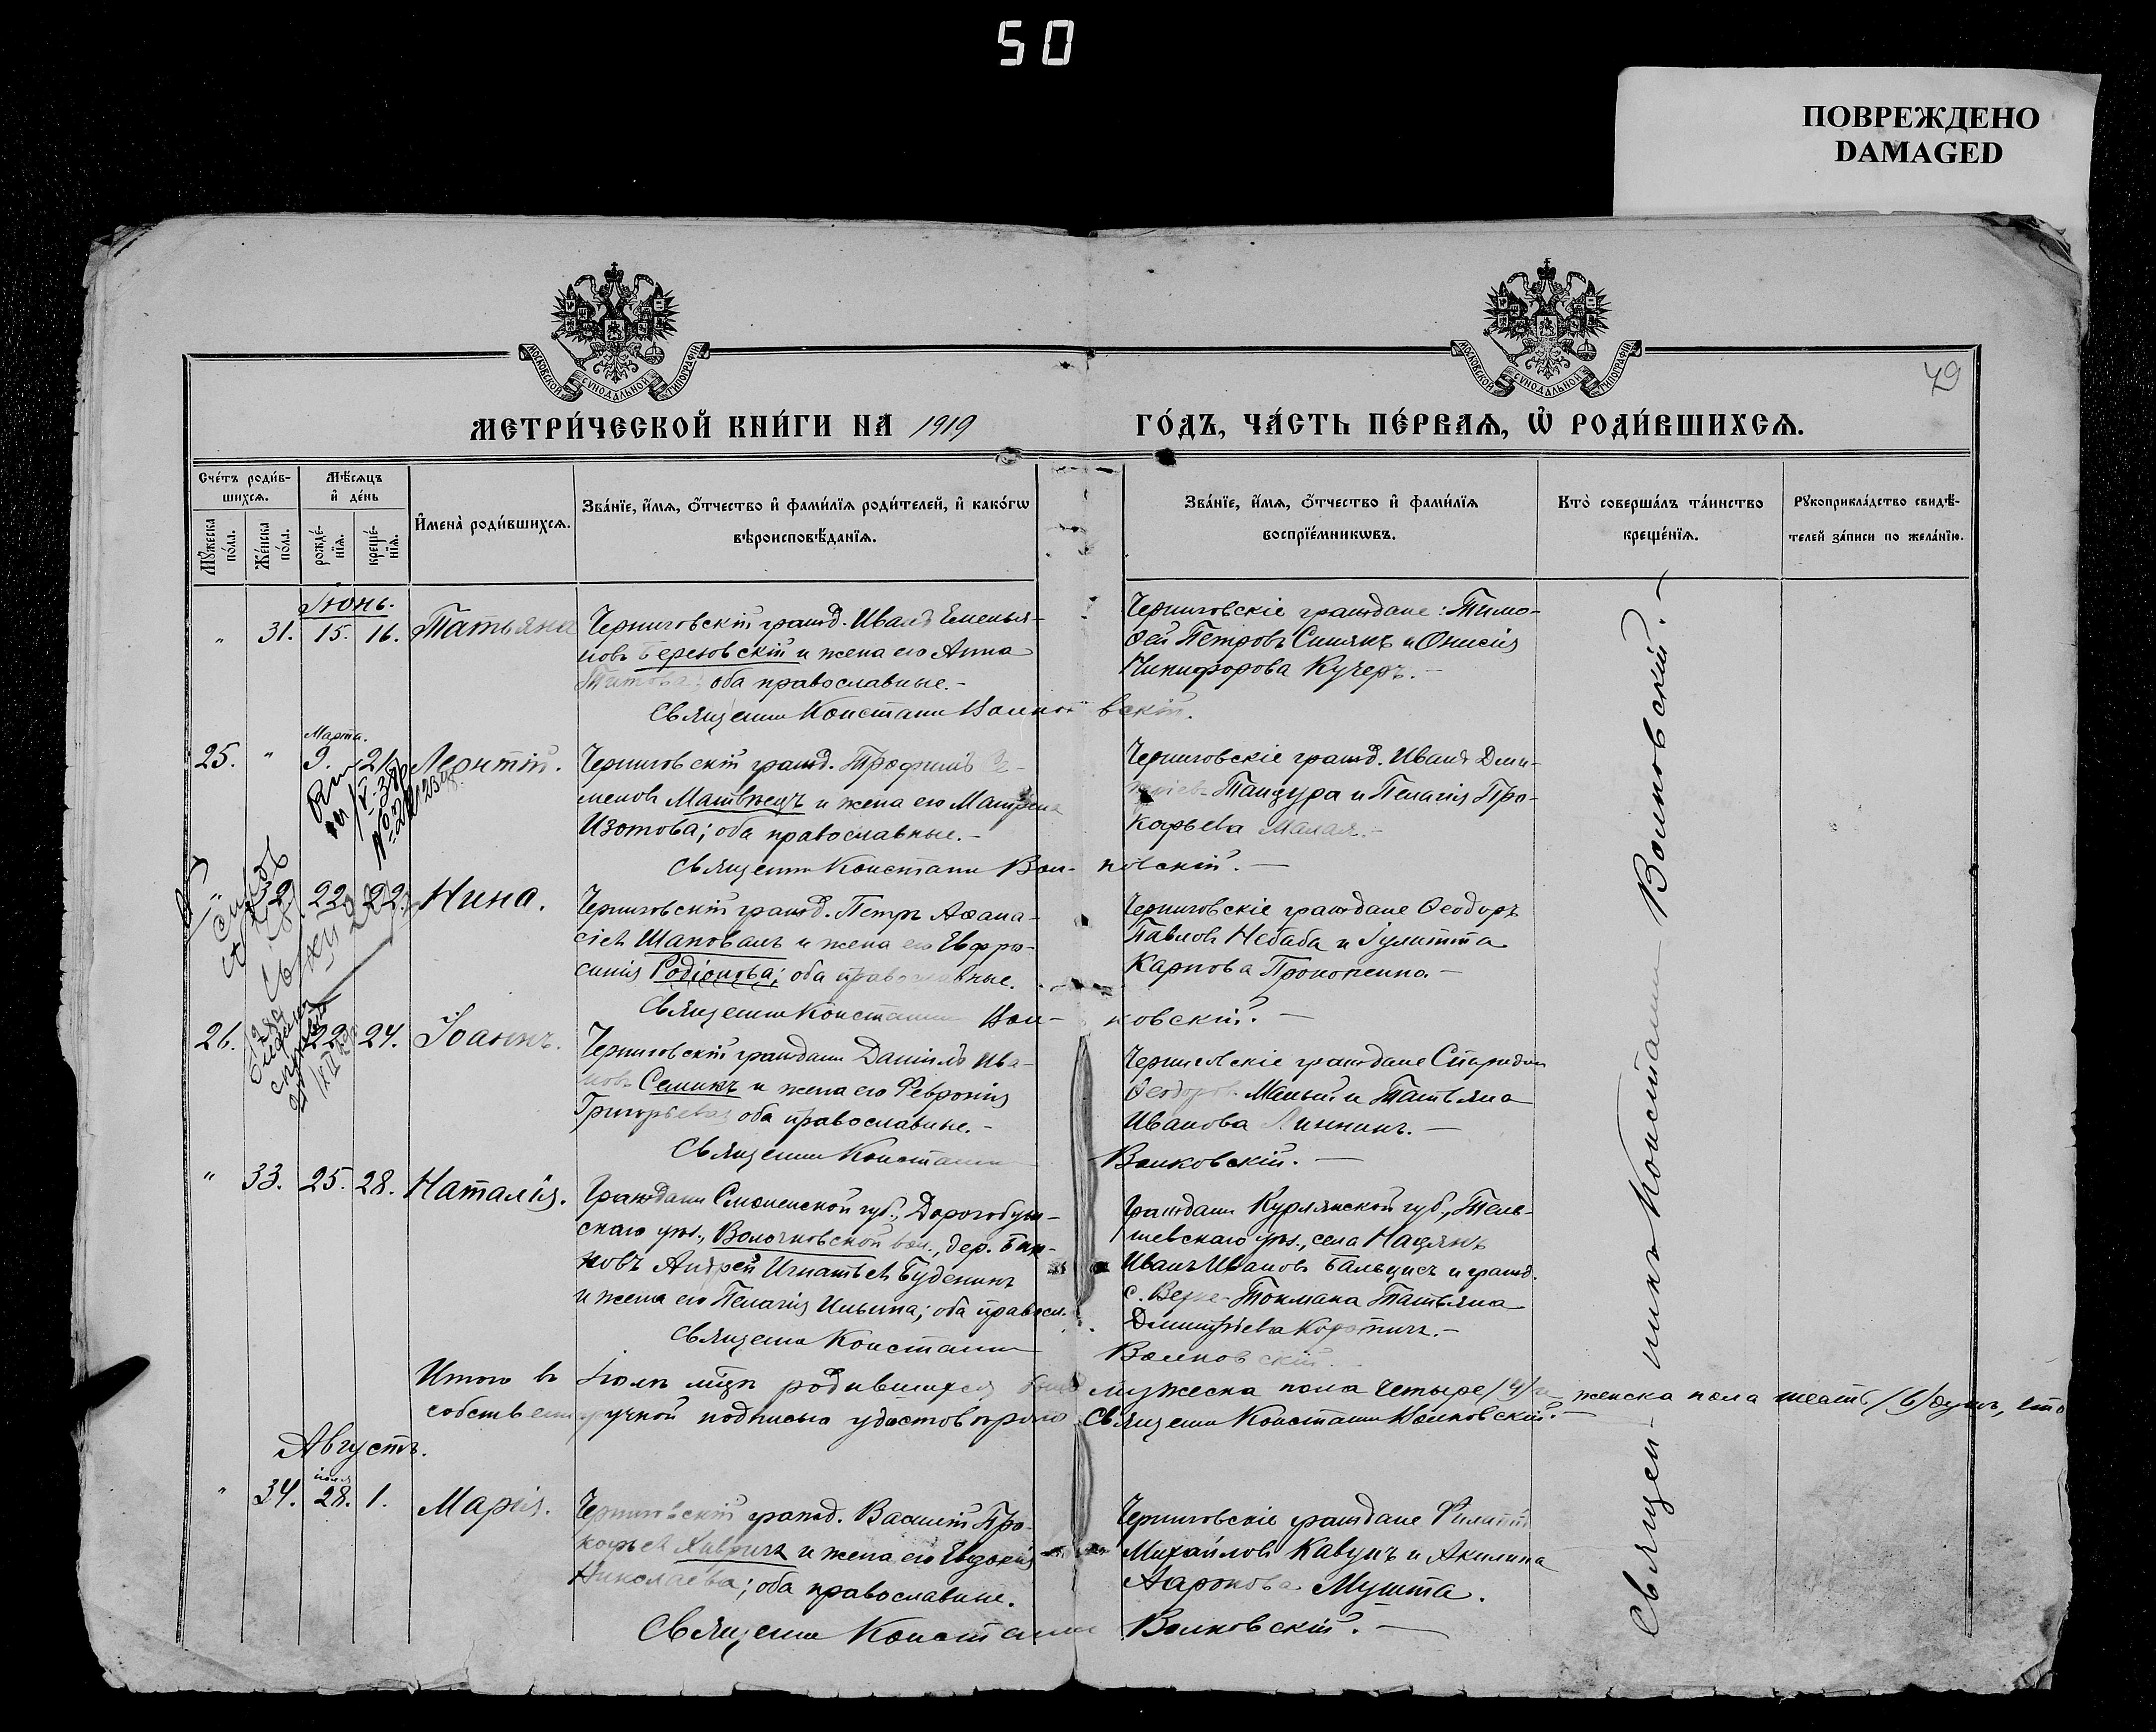 50
ПОВРЕЖДЕНО
DAMAGED
МОСКОВСКОЙ СѴНОДАЛЬНОЙ ТИПОГРАФІИ
МОСКОВСКОЙ СѴНОДАЛЬНОЙ ТИПОГРАФІИ
49
МЕТРИ́ЧЕСКОЙ КНИ́ГИ НА 1919
ГО́ДЪ, ЧА́СТЬ ПЕ́РВАѦ, Ѡ҆ РОДИ́ВШИХСѦ.
Сче́тъ роди́в-
шихсѧ.
Мѣ́сѧцъ
и҆ де́нь
И҆мена̀ роди́вшихсѧ.
Зва́нїе, и҆́мѧ, ѻ҆́тчество и҆ фами́лїѧ роди́телей, и҆ како́гѡ
вѣроисповѣ́данїѧ.
Мꙋ́жеска
по́ла.
Же́нска
по́ла.
рожде́-
нїѧ.
креще́-
нїѧ.
Зва́нїе, и҆́мѧ, ѻ҆́тчество и҆ фами́лїѧ
воспрїе́мникѡвъ.
Кто̀ соверша́лъ та́инство
креще́нїѧ.
Рꙋкоприкла́дство свидѣ́-
телей за́писи по жела́нїю.
Іюнь.
" 31. 15. 16. Татьяна
Черниговскій гражд. Иванъ Емелья-
новъ Березовскій и жена его Анна
Титова; оба православные.-
Священн Констант Волковскій.
Черниговскіе граждане: Тимо-
ѳей Петровъ Синякъ и Онисія
Никифорова Кучеръ.-
Марта.
25. " 9. 21. Леонтій.
Черниговскій гражд. Трофимъ Се-
меновъ Матвѣецъ и жена его Матрена
Изотова; оба православные.-
Священн Констант Вол- ковскій.-
Черниговскіе гражд. Иванъ Дми-
тріевъ Танцура и Пелагія Про-
кофьева Малая.-
" 32 22. 22. Нина.
Черниговскій гражд. Петръ Аѳана-
сіевъ Шаповалъ и жена его Евфро-
синія Родіонова; оба православные.
Священн Констант Вол- ковскій.-
Черниговскіе граждане Ѳеодоръ
Павловъ Небаба и Іулитта
Карпова Прокопенко.-
26. 22 24. Іоаннъ.
Черниговскій граждан Даніилъ Ива-
новъ Семикъ и жена его Февронія
Григорьева; оба православные.-
Священн Констант Волковскій.-
Черниговскіе граждане Спиридон
Ѳеодоровъ Малый и Татьяна
Иванова Линникъ.-
" 33. 25. 28. Наталія.
Граждан Смоленской губ., Дорогобуж-
скаго уѣз., Волочковской вол., дер.
Андрей Игнатьевъ Буденинъ
и жена его Пелагія Ильина; оба правосл.
Священн Констант Волковскій.
Граждан Курлянской губ., Тель-
шевскаго уѣз., села
Иванъ Ивановъ и гражд.
с. Верхн-Токмака Татьяна
Дмитріева Коротичъ.-
Итого въ Іюлѣ мцѣ родившихся было мужеска пола четыре /4/ и женска пола шесть /6/ душъ, что
собственноручной подписью удостовѣряю Священн Констант Волковскій.-
Августъ.
іюля
" 34. 28. 1. Марія.
Черниговскій гражд. Василій Про-
кофьевъ Хивричъ и жена его Евдокія
Николаева; оба православные.
Священн Констант Волковскій.-
Черниговскіе граждане Филиппъ
Михайловъ Кавунъ и Акилина
Ааронова Мушта.
Священ- никъ Констант Волковскій.-